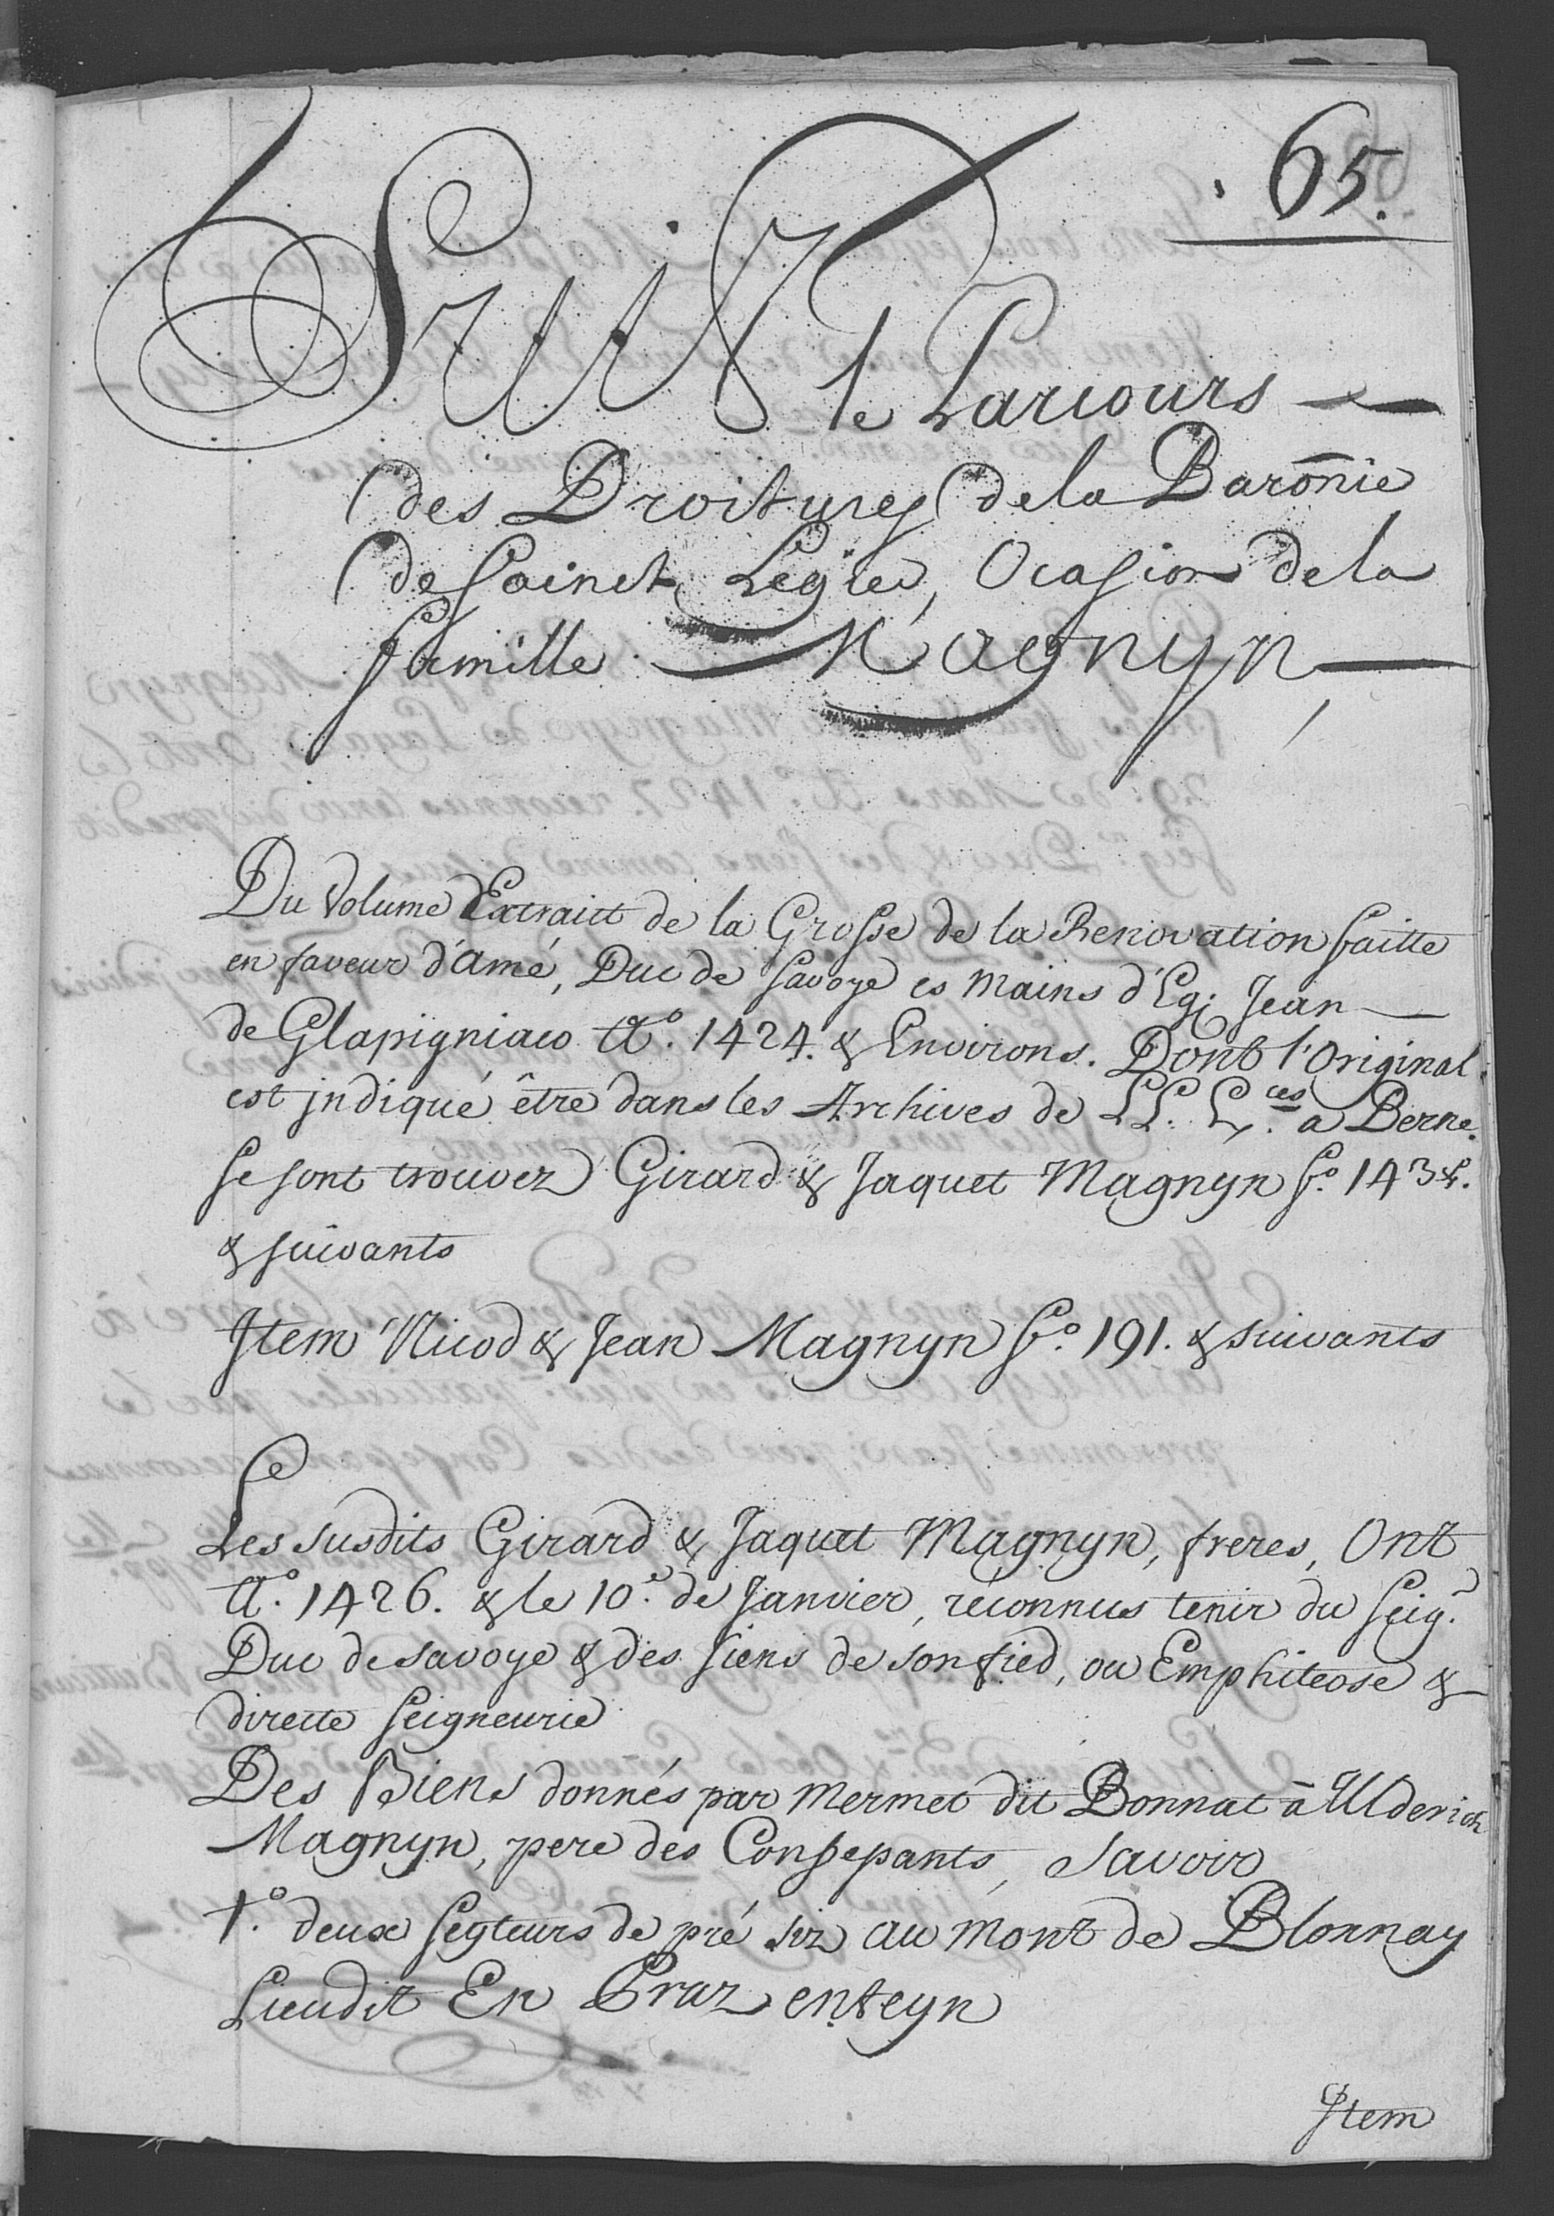 65.
Suit le Parcours
des Droitures de la Baronie
de Sainct Legier, Ocasion de la
famille Magnyn
Du Volume Extraitt de la Grosse de la Renovation faitte
en faveur d'Amé, Duc de Savoye es mains d'Eg: Jean
de Glapigniaco Aº. 1424. & Environs. Dont l'Original
est jndiqué être dans les Archives de LL. Ex.ces a Berne.
se sont trouvez Girard & Jaquet Magnyn fº. 143
& suivants
Jtem Nicod & Jean Magnyn fº. 191. & suivants
Les susdits Girard & Jaquet Magnyn, freres, Ont
Aº. 1426. & le 10e. de Janvier, réconnus tenir du Seig.r
Duc de Savoye & des siens de son fied, ou Emphiteose &
directe Seigneurie
Des Biens donnés par Mermet dit Bonnat à Ulderich
Magnyn, pere des Confessants, Savoir
1º. deux seyteurs de pré siz au Mont de Blonnay
Lieudit En Praz enteyn
Jtem